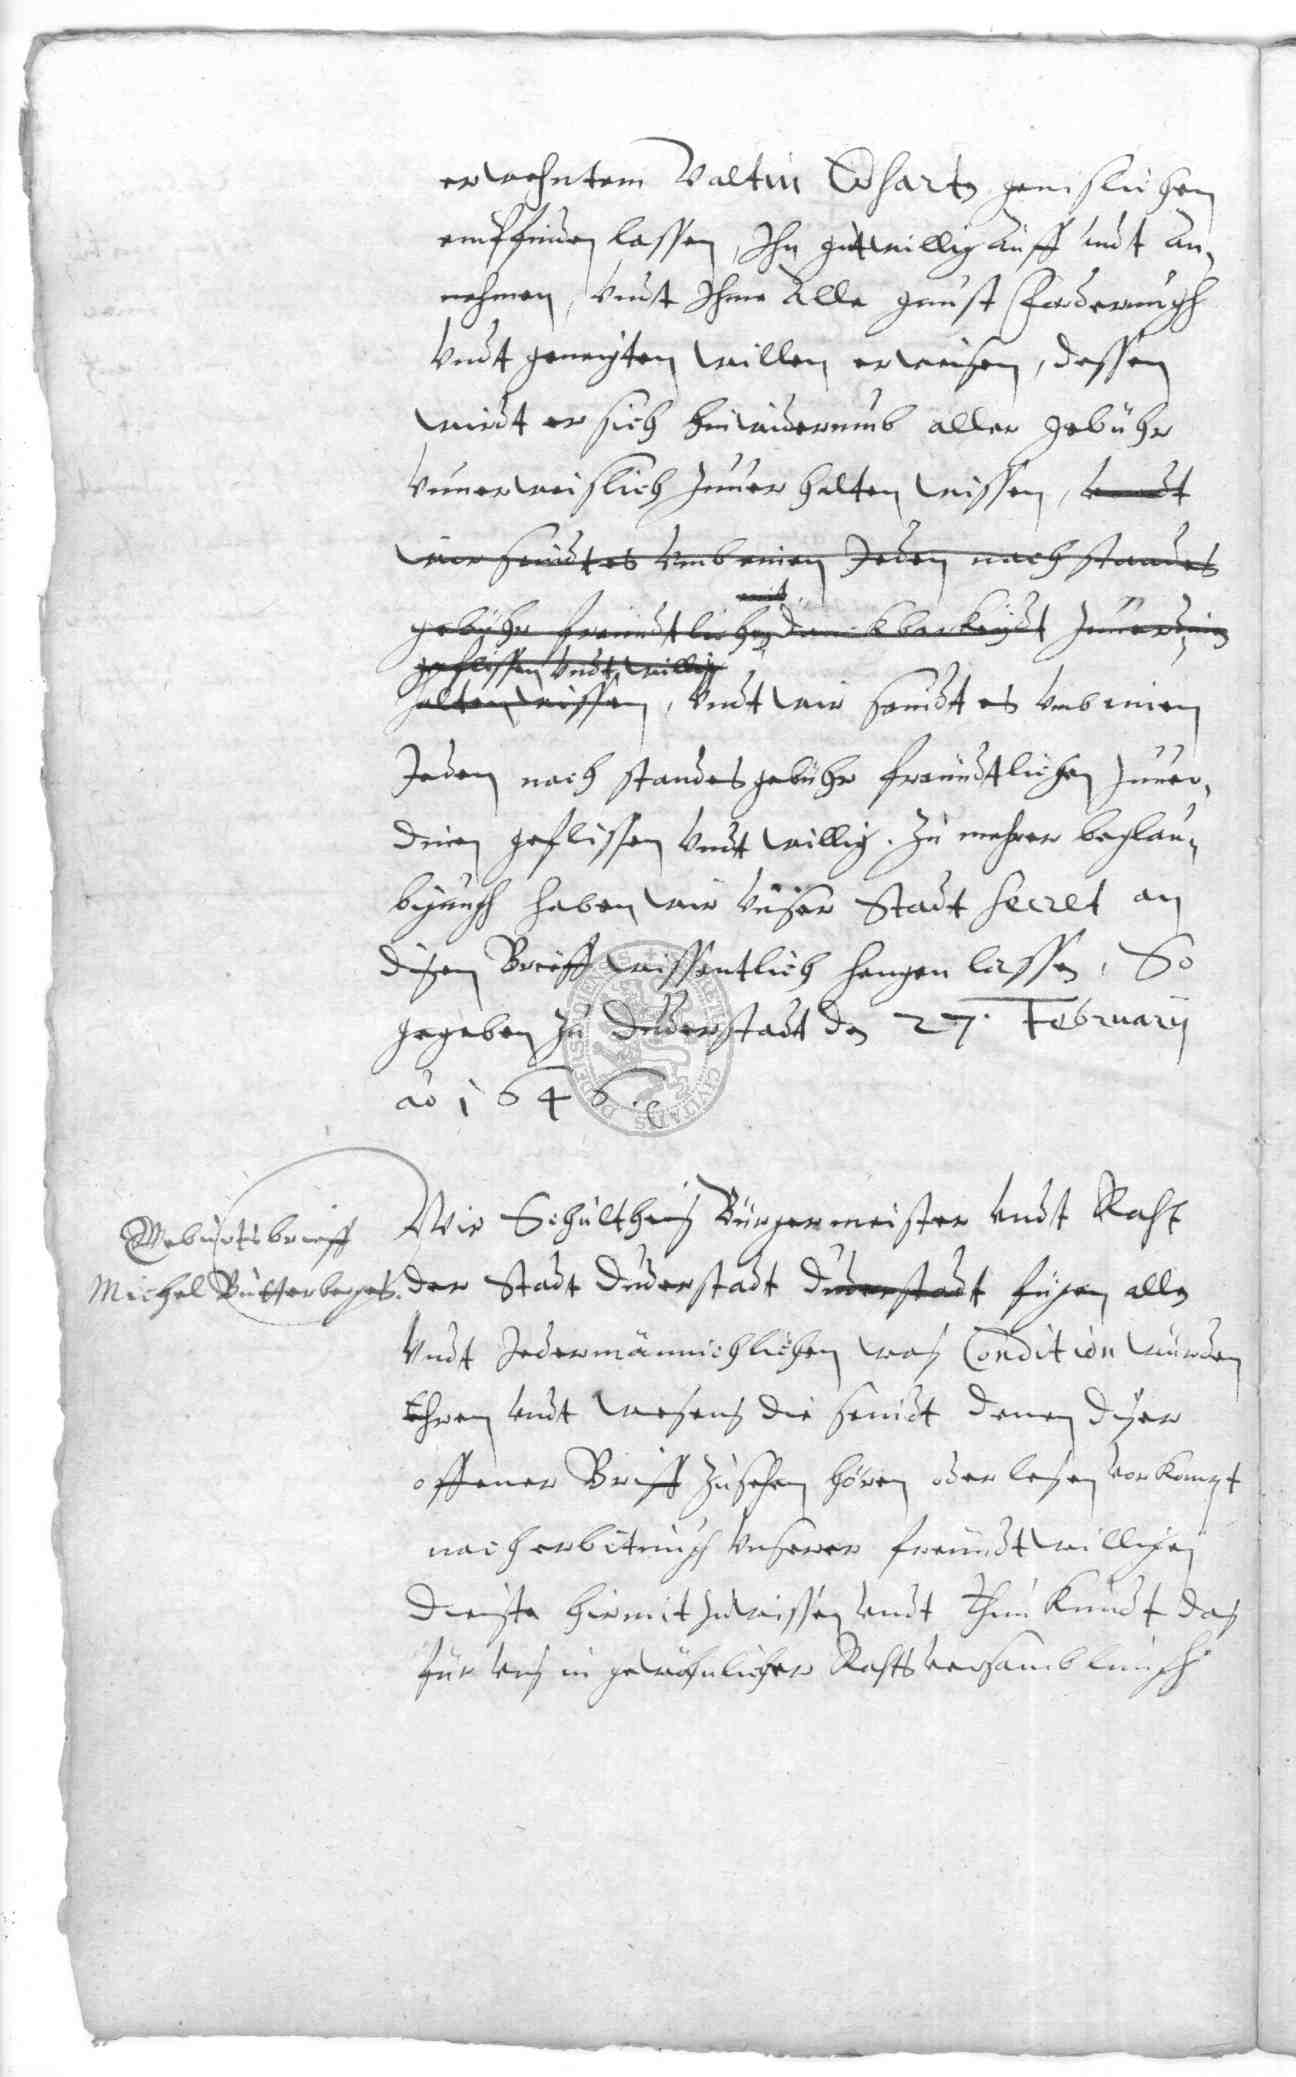 erwehntem Valtin Echarts genislichen
empfinden lassen, Ihn gutwillig auff undt an¬
nehmen, undt Ihme alle gunst Forderungh
undt geneigten willen erweisen, dessen
wirdt er sich hinwiderumb aller gebühr
unverweislich zuverhalten wissen, undt
wir seindt es umb einen Jeden nach standes
gebühr freundtlichen danckbarkeydt zuverdinen
mit
geflissen undt willig
halten wissen, undt wir seindt es umb einen
Jeden nach standes gebühr freundtlichen zuver¬
dinen geflissen undt willig. Zu mehrer beglau¬
bigungh haben wir unser Stadt secret an
disen Brieff wissentlich hangen lassen, So
gegeben zu Duderstadt den 27. Februarij
ao 1646.
Geburtsbrieff
Michel Butterberges.
Wir Schultheis Bürgermeister undt Raht
der Stadt Duderstadt Duderstadt fügen allen
undt Jedermännichlichen was Condition wurden
Ehren undt wesens die seindt denen diser
offener Brieff zusehen hören oder lesen vorkompt
nach erbitungh unserer freundtwilligen
dienste hirmit zuwissen undt thun kundt das
für uns in gewöhnlicher Rahtsversamblungh
CIVITATIS